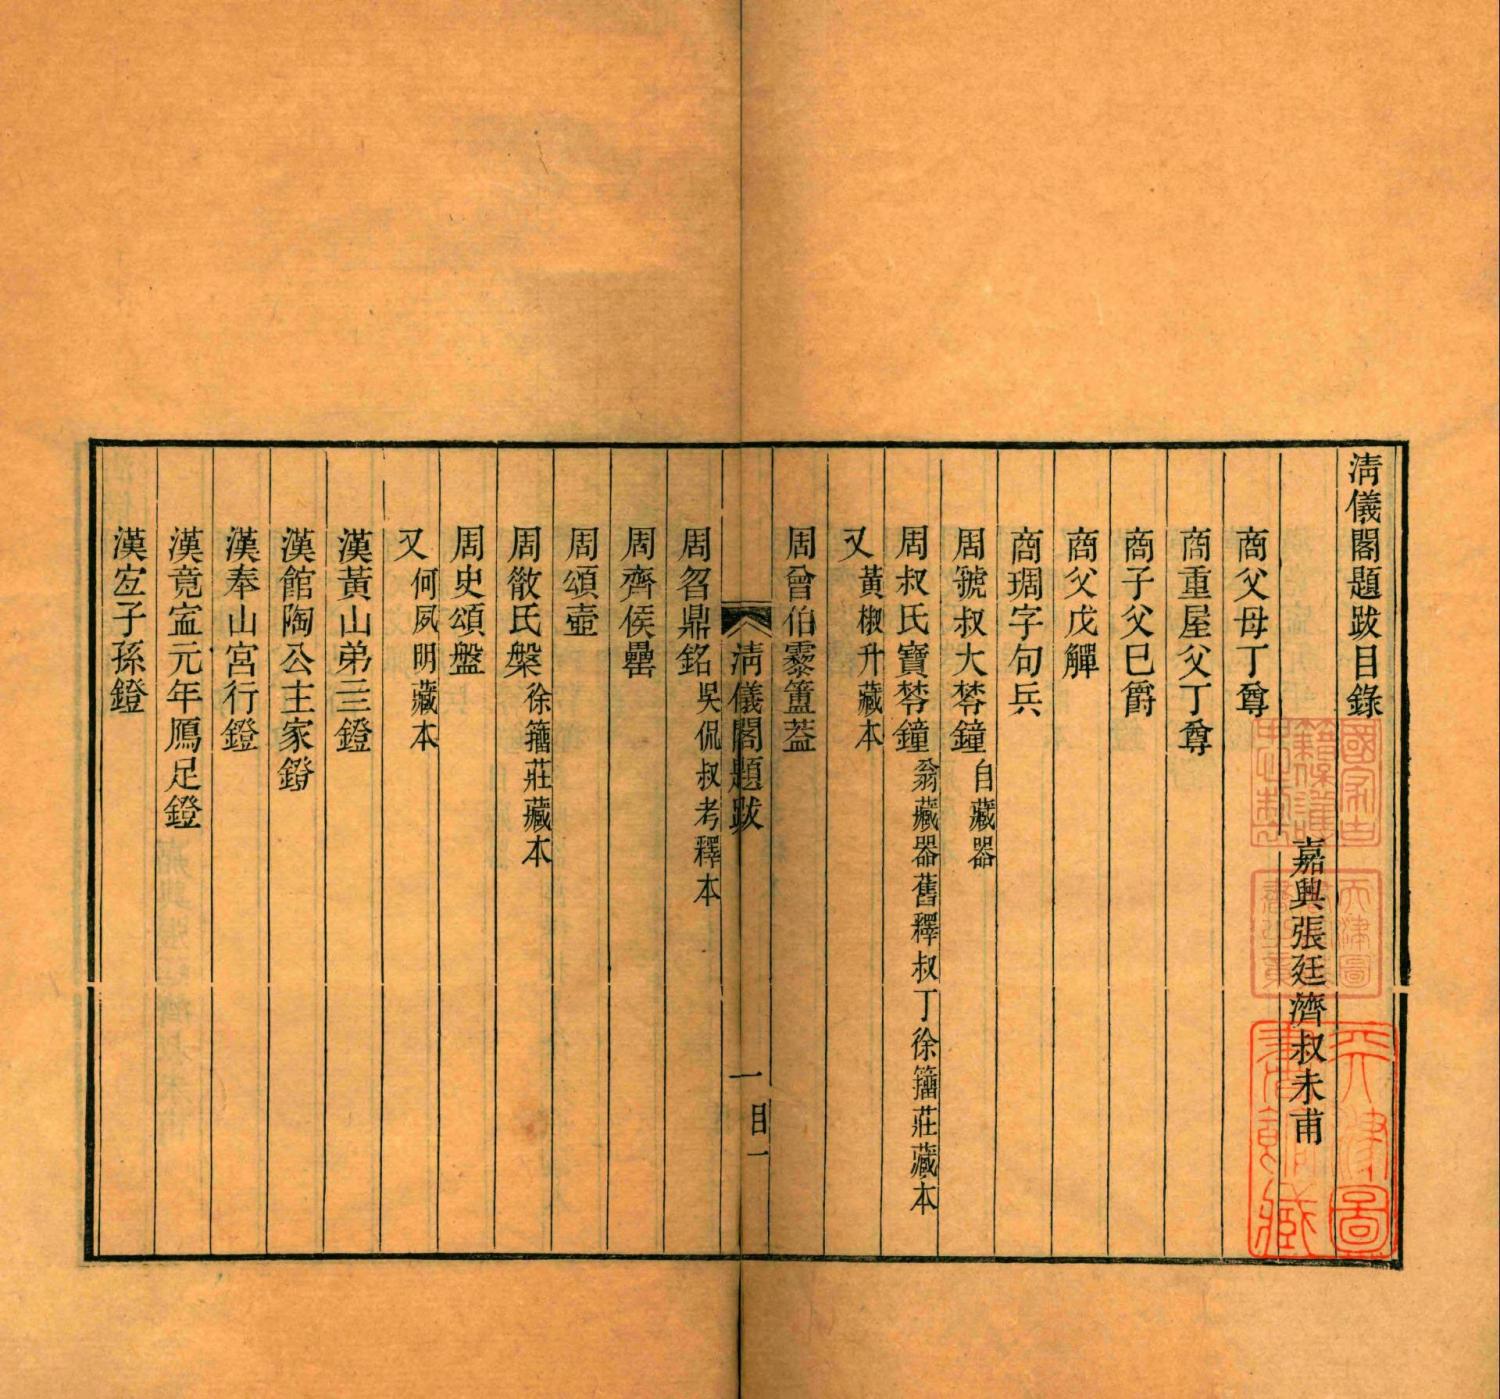 清儀閣題跋目錄
嘉興張廷濟叔未甫
商父母丁尊
商重屋父丁尊
商子父巳爵
商父戊觶
商琱字句兵
周虢叔大䔹鐘 自藏器
周叔氏寶䔹鐘 翁藏器舊釋叔丁徐籀莊藏本
又 黃椒升藏本
周曾伯霥簠蓋
清儀閣題跋
一
目一
周曶鼎銘 吳侃叔考釋本
周齊侯罍
周頌壺
周散氏槃 徐籀莊藏本
周史頌盤
又 何夙明藏本
漢黃山弟三鐙
漢館陶公主家鐙
漢奉山宮行鐙
漢竟寍元年鴈足鐙
漢宐子孫鐙
國家古籍保護
天津圖
天津圖
書館藏